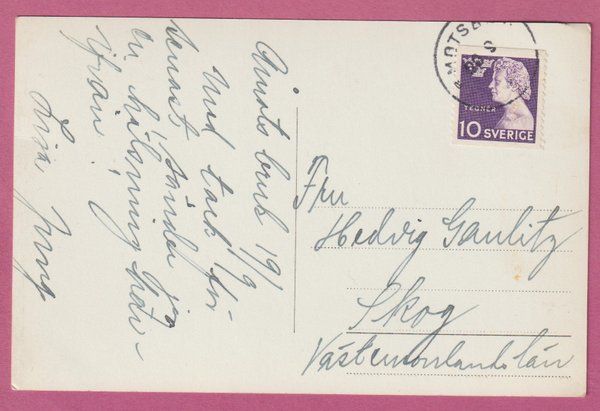 Åmots bruk 19/9
Med tack för
senast sänder jag
en hälsning här-
ifrån!
Lisa
TEGNÉR
10 SVERIGE
Fru
Hedvig Gaulitz
Skog
Västernorrlands län